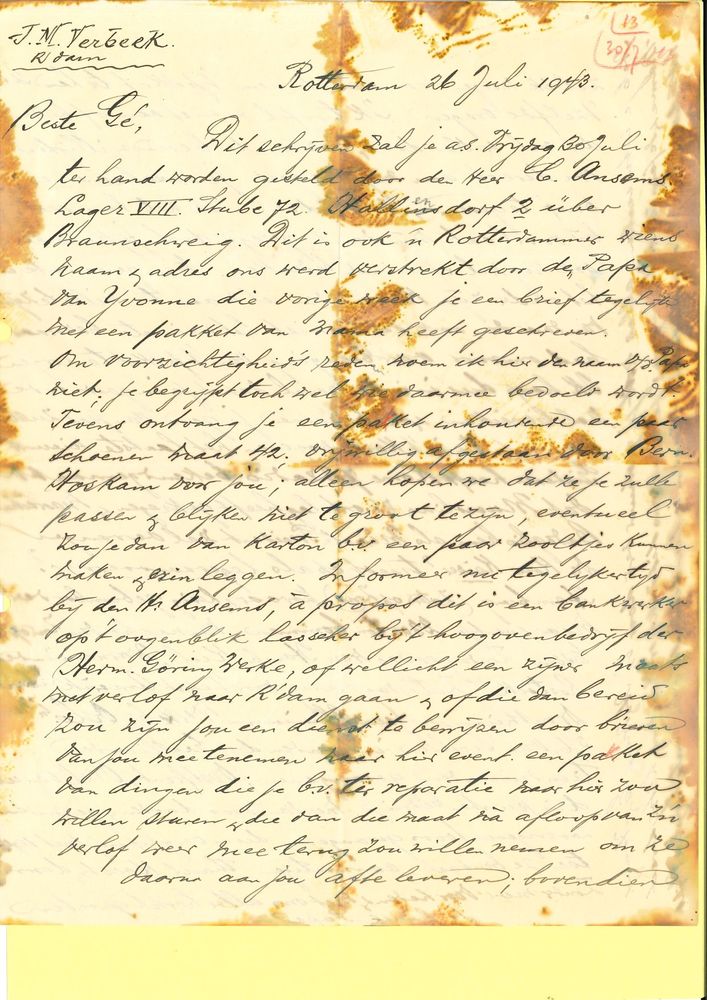 J. M. Verbeek.
R'dam
13
30/7
Rotterdam 26 Juli 1943.
Beste Gé,
Dit schrijven zal je a.s. Vrijdag 30 Juli
ter hand worden gesteld door den Heer C. Ansems
Lager VIII. Stube 72. Hallendorf 2 über
Braunschweig. Dit is ook 'n Rotterdammer wiens
naam & adres ons werd verstrekt door de „Papa
van Yvonne die vorige week je een brief tegelijk
met een pakket van Mama heeft geschreven.
Om voorzichtigheid's reden noem ik hier den naam v/d Papa
niet; je begrijpt toch wel wie daarmee bedoeld wordt.
Tevens ontvang je een paket inhoudende een paar
schoenen maat 42, vrijwillig afgestaan door Bern.
Hoskam voor jou; alleen hopen we dat ze je zulle
passen & blijken niet te groot te zijn, eventueel
zou je dan van karton bv. een paar zooltjes kunnen
maken & er in leggen. Informeer nu tegelijkertijd
bij den Hr. Ansems, à propos dit is een bankwerker
op 't oogenblik lasscher bij 't hoogovenbedrijf der
Herm. Göring Werke, of wellicht een zijner maats
met verlof naar R'dam gaan & of die dan bereid
zou zijn jou een dienst te bewijzen door brieven
van jou mee te nemen naar hier event. een paket
van dingen die je b.v. ter reparatie naar hier zou
willen sturen & die dan die maat na afloop van z'n
verlof weer mee terug zou willen nemen om ze
daarna aan jou af te leveren; bovendien